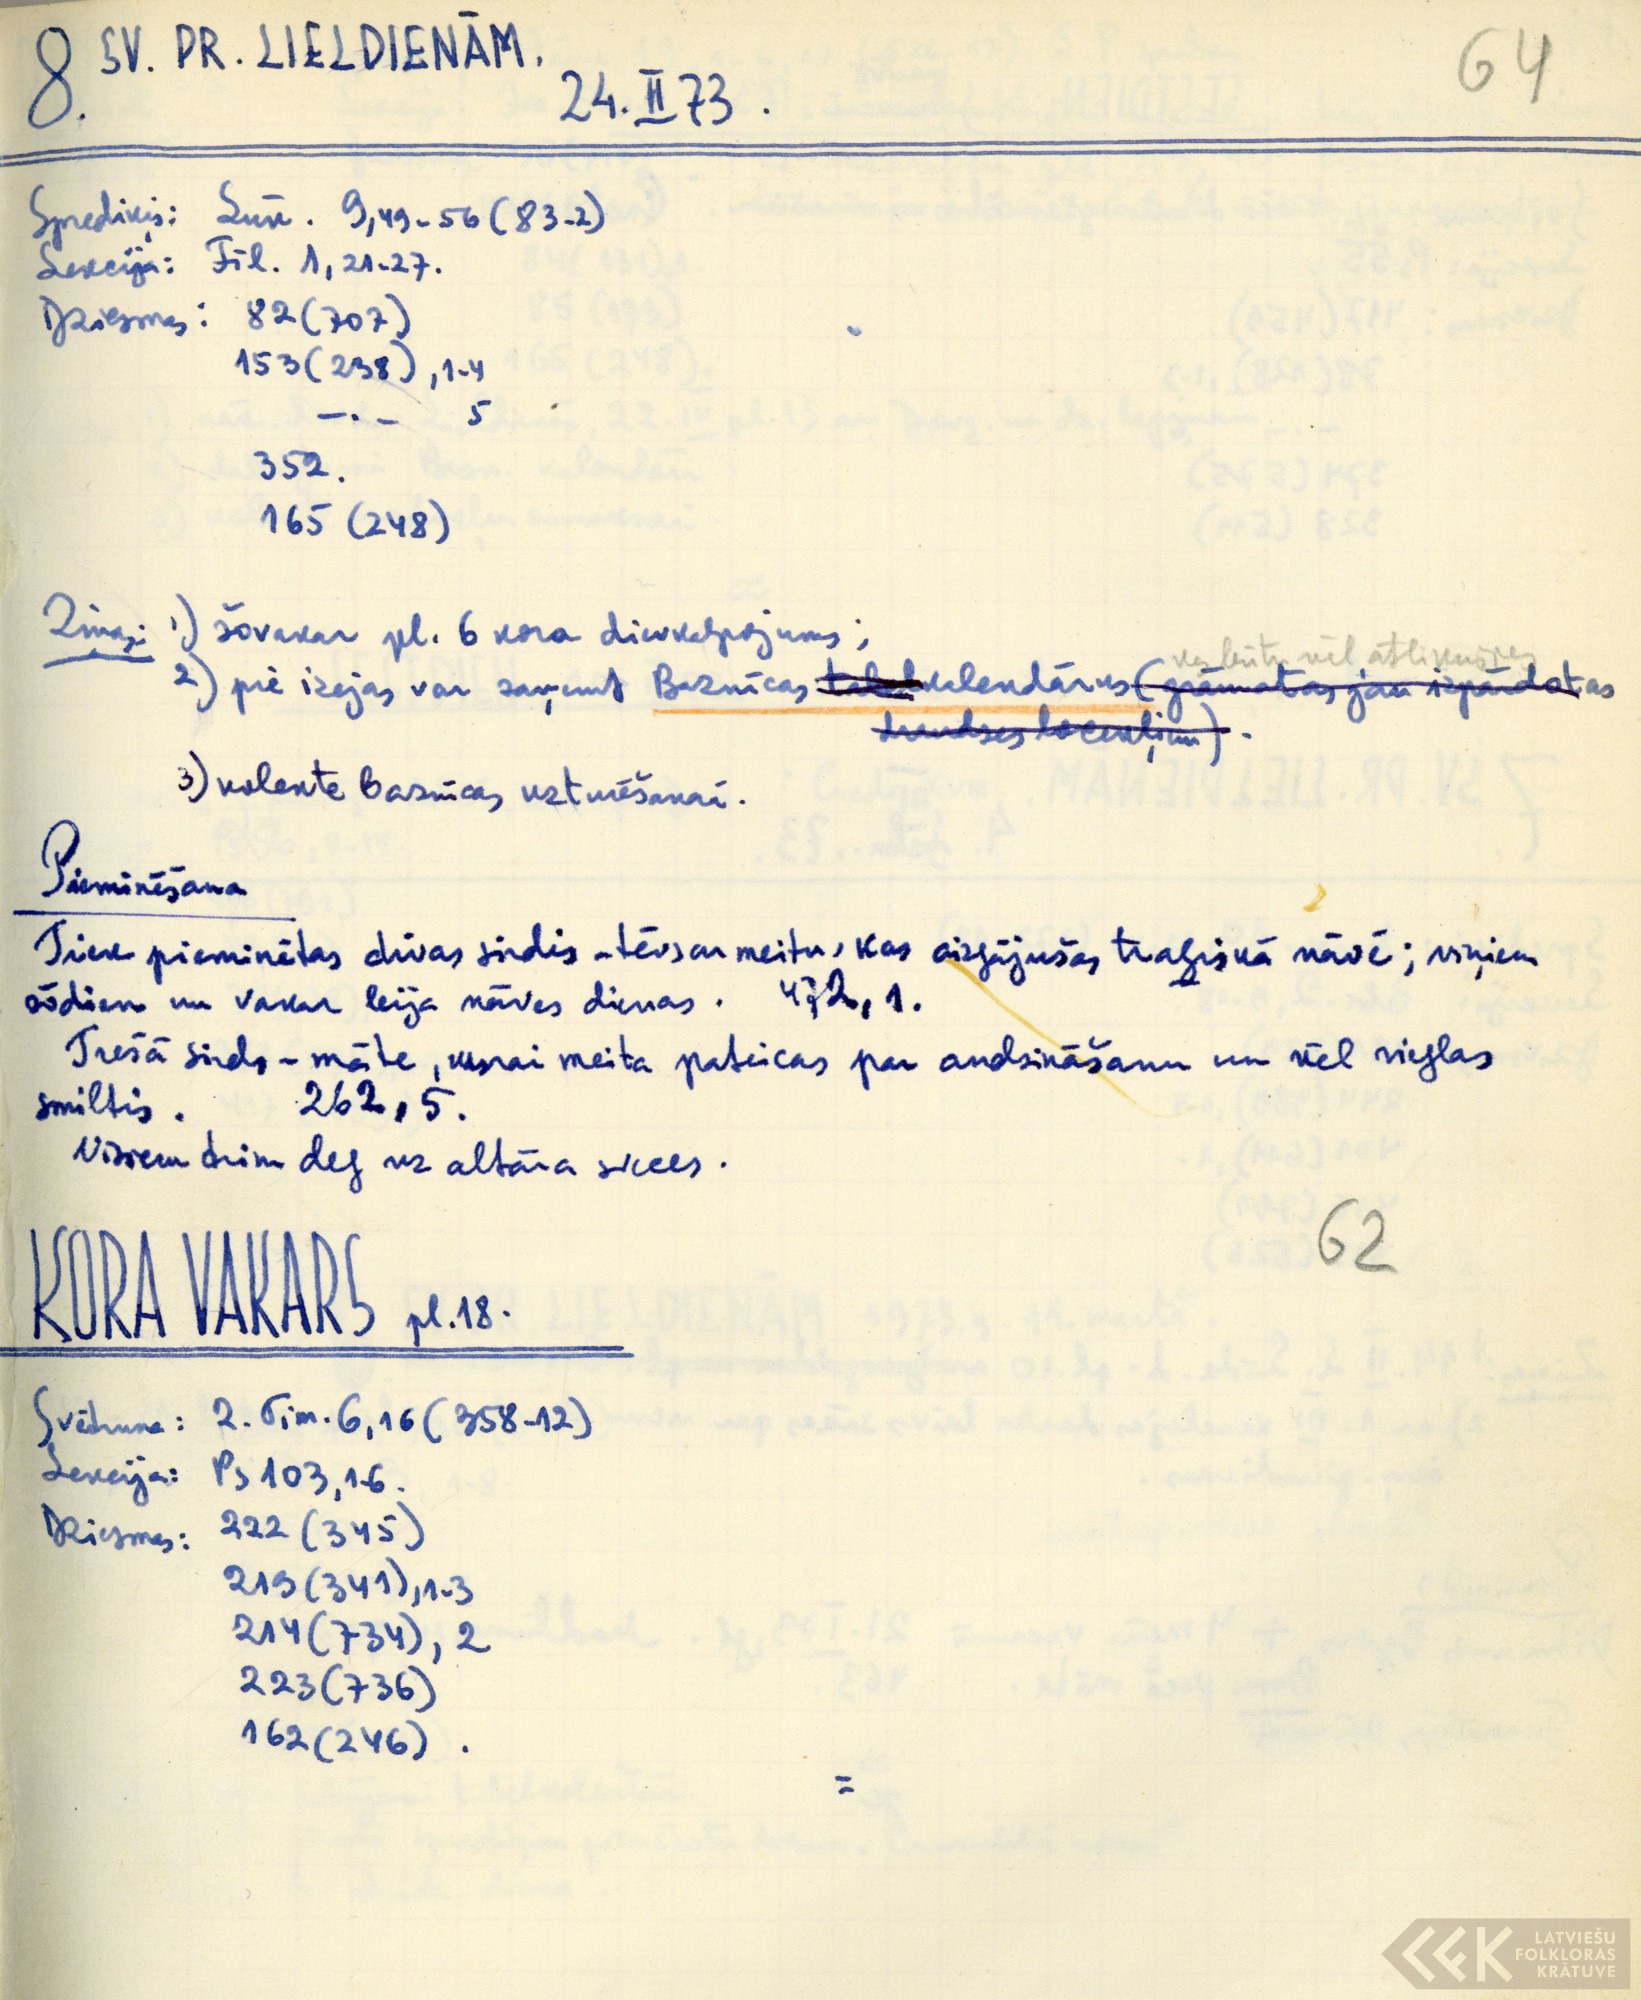 8. SV. PR. LIELDIENĀM.
24. II 73.
64
Sprediķis: Lūk. 9,49-56 (83-2)
Lekcija: Fil. 1, 21-27.
Dziesmas: 82 (707)
153 (238), 1-4
—.— 5
352.
165 (248)
Ziņas: 1) šovakar pl. 6 kora dievkalpojums;
2) pie izejas var saņemt Baznīcas kalendārus (grāmatas jau izpārdotas
draudzes locekļiem).
3) kolekte Baznīcas uzturēšanai.
Pieminēšana
Tiek pieminētas divas sirdis - tēvs ar meitu, kas aizgājušas traģiskā nāvē; viņiem
šodien un vakar bija nāves dienas. 472, 1.
Trešā sirds - māte, kurai meita pateicas par audzināšanu un vēl vieglas
smiltis. 262, 5.
Visiem trim deg uz altāra sveces.
62
KORA VAKARS pl. 18.
Svētruna: 2. Tim. 6, 16 (358-12)
Lekcija: Ps 103, 1-6.
Dziesmas: 222 (345)
219 (341), 1-3
214 (734), 2
223 (736)
162 (246).
=
LATVIEŠU
FOLKLORAS
KRĀTUVE